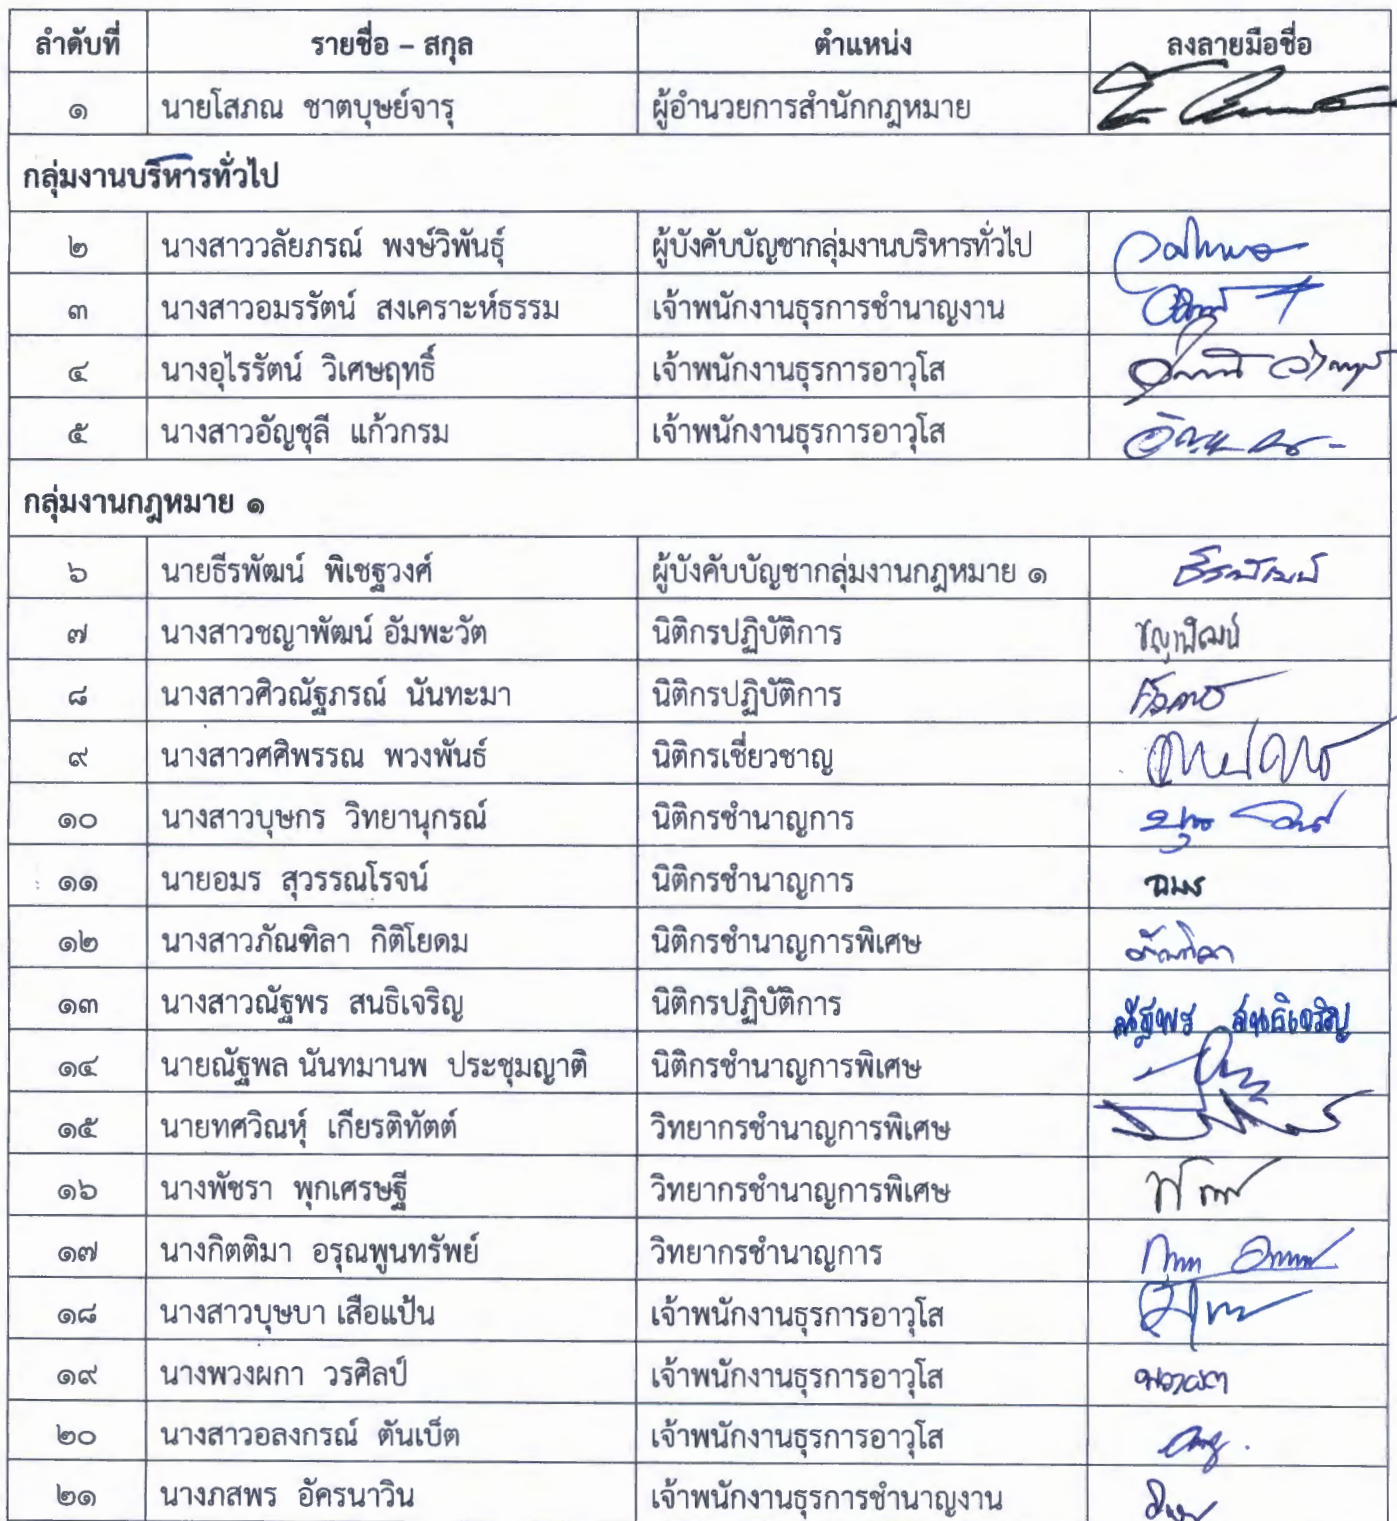 ลำดับที่ รายชื่อ – สกุล ตำแหน่ง ลงลายมือชื่อ
๑ นายโสภณ ชาตบุษย์จารุ ผู้อำนวยการสำนักกฎหมาย
กลุ่มงานบริหารทั่วไป
๒ นางสาววลัยภรณ์ พงษ์วิพันธุ์ ผู้บังคับบัญชากลุ่มงานบริหารทั่วไป
๓ นางสาวอมรรัตน์ สงเคราะห์ธรรม เจ้าพนักงานธุรการชำนาญงาน
๔ นางอุไรรัตน์ วิเศษฤทธิ์ เจ้าพนักงานธุรการอาวุโส
๕ นางสาวอัญชุลี แก้วกรม เจ้าพนักงานธุรการอาวุโส
กลุ่มงานกฎหมาย ๑
๖ นายธีรพัฒน์ พิเชฐวงศ์ ผู้บังคับบัญชากลุ่มงานกฎหมาย ๑ ธีรพัฒน์
๗ นางสาวชญาพัฒน์ อัมพะวัต นิติกรปฏิบัติการ ชญาพัฒน์
๘ นางสาวศิวณัฐภรณ์ นันทะมา นิติกรปฏิบัติการ
๙ นางสาวศศิพรรณ พวงพันธ์ นิติกรเชี่ยวชาญ
๑๐ นางสาวบุษกร วิทยานุกรณ์ นิติกรชำนาญการ
๑๑ นายอมร สุวรรณโรจน์ นิติกรชำนาญการ อมร
๑๒ นางสาวภัณฑิลา กิติโยดม นิติกรชำนาญการพิเศษ ภัณฑิลา
๑๓ นางสาวณัฐพร สนธิเจริญ นิติกรปฏิบัติการ ณัฐพร สนธิเจริญ
๑๔ นายณัฐพล นันทมานพ ประชุมญาติ นิติกรชำนาญการพิเศษ
๑๕ นายทศวิณหุ์ เกียรติทัตต์ วิทยากรชำนาญการพิเศษ
๑๖ นางพัชรา พุกเศรษฐี วิทยากรชำนาญการพิเศษ
๑๗ นางกิตติมา อรุณพูนทรัพย์ วิทยากรชำนาญการ
๑๘ นางสาวบุษบา เสือแป้น เจ้าพนักงานธุรการอาวุโส
๑๙ นางพวงผกา วรศิลป์ เจ้าพนักงานธุรการอาวุโส พวงผกา
๒๐ นางสาวอลงกรณ์ ตันเบ็ต เจ้าพนักงานธุรการอาวุโส
๒๑ นางภสพร อัครนาวิน เจ้าพนักงานธุรการชำนาญงาน